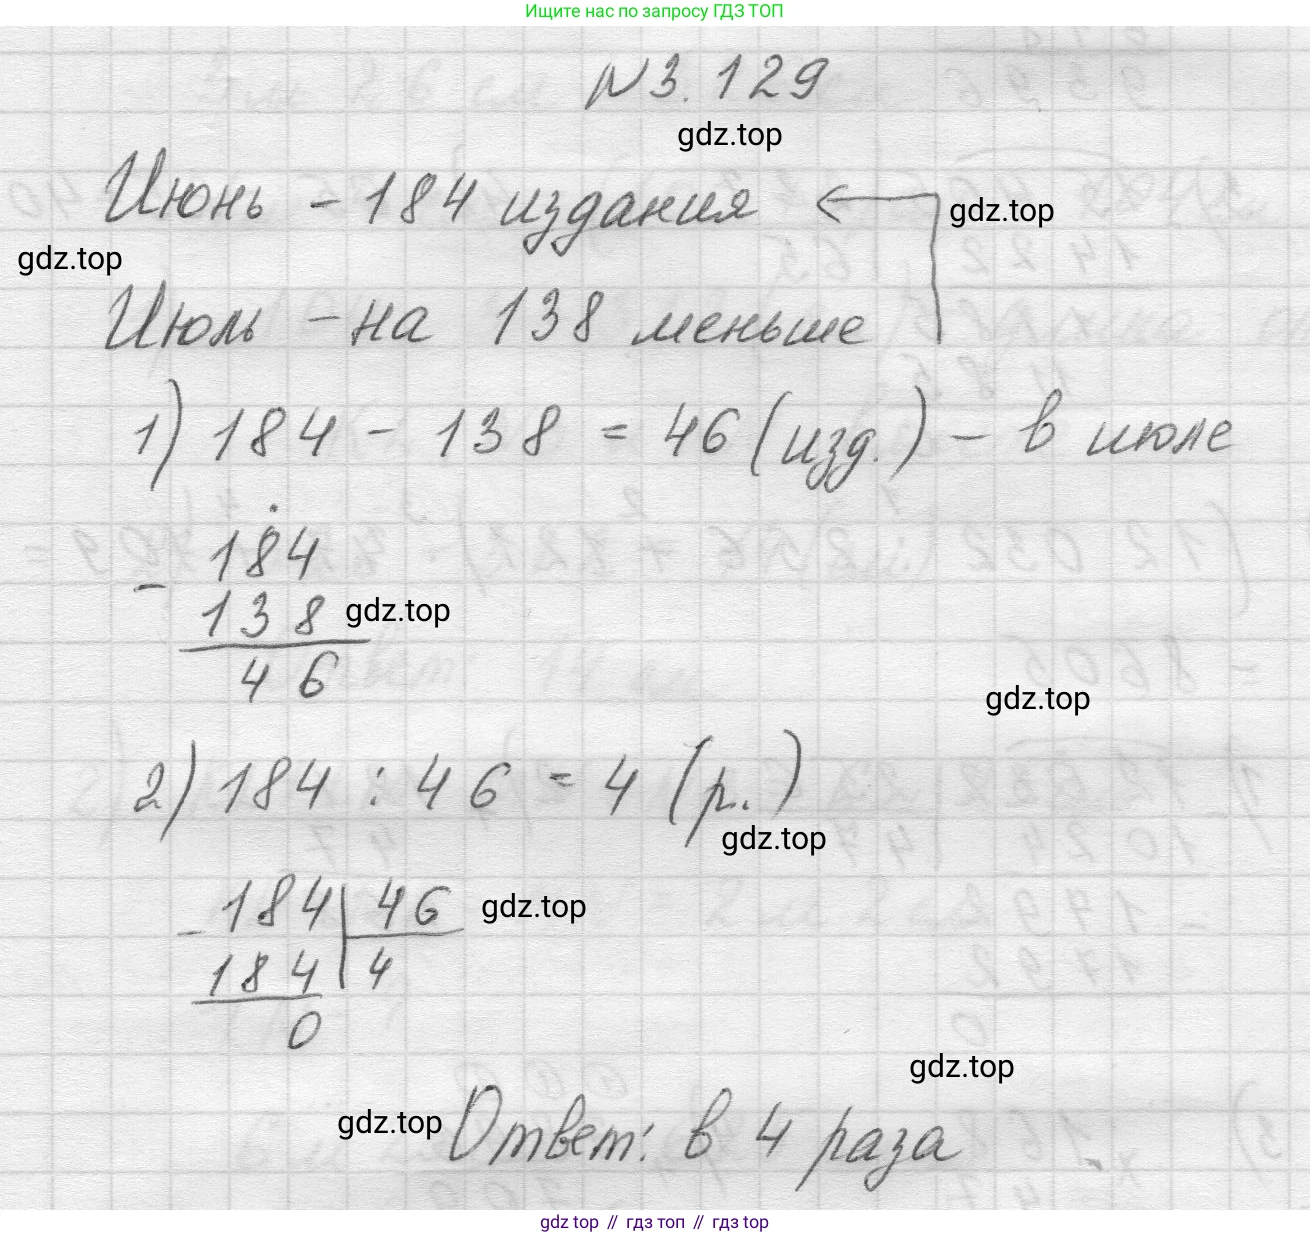 Ищите нас по запросу ГДЗ ТОП
N3.129
gdz.top
Июнь - 184 издания
gdz.top
gdz.top
Июль - на 138 меньше
1) 184 - 138 = 46 (изд.) - в июле
- 184
138
gdz.top
46
gdz.top
2) 184 : 46 = 4 (р.)
gdz.top
- 184 | 46
gdz.top
184 | 4
0
gdz.top
gdz.top
Ответ: в 4 раза
gdz top // гдз топ // гдз top